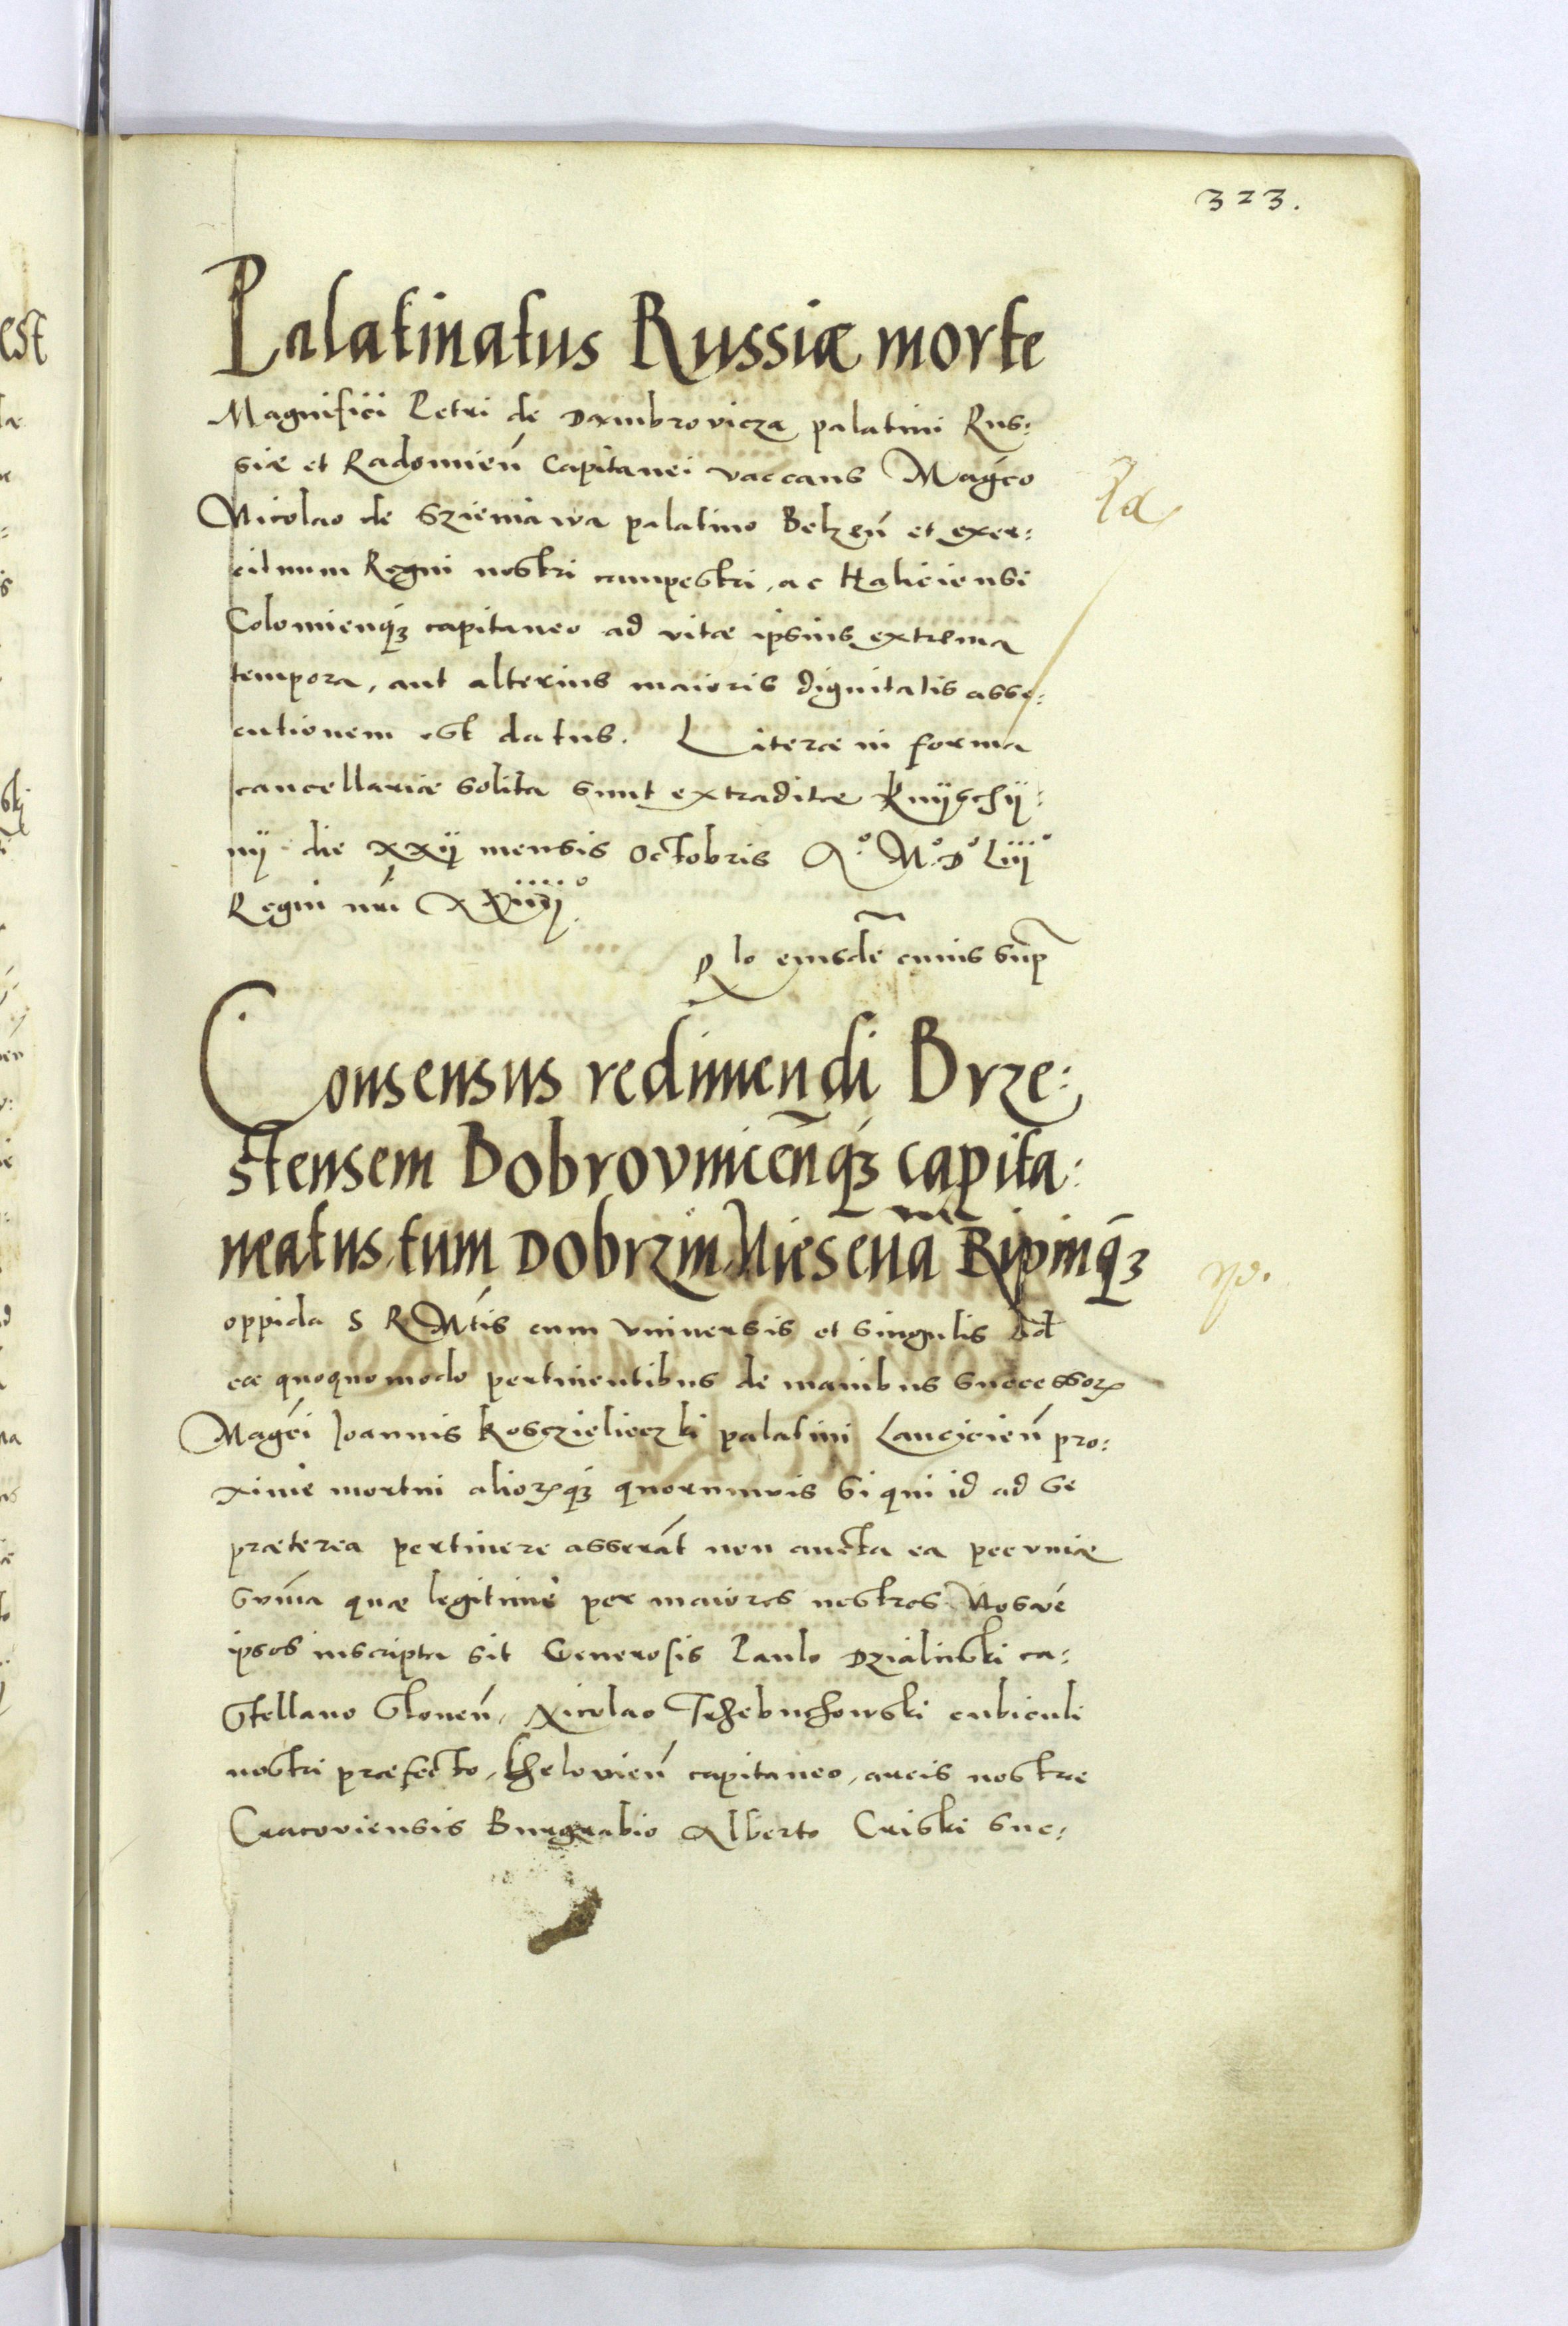 323.
Palatinatus Russiæ morte
Magnifici Petri de Dambrovicza palatini Rus:
siæ et Radomien̄ Capitanei vaccans Magco
Nicolao de Szieniawa palatino Belzen̄ et exer:
cituum Regni nostri campestri, ac Haliciensi
Colomienq́ꝫ capitaneo ad vitæ ipsius extrema
tempora, aut alterius maioris dignitatis asse:
cutionem est datus. Literæ in forma
cancellariæ solita sunt extraditæ Knÿschÿ:
nÿ die xxij mensis Octobris A.º M.º Dº Liijº
Regni nr̄i XXiiijº
consensus redimendi Brze:
stensem Bobrovnicen̄q́ꝫ capita:
neatus, tum Dobrzin, Niesewa Ripinq́ꝫ
oppida S R Mtis cum vniuersis et singulis ad
ea quoquomodo pertinentibus de manibus successorꝝ
Magci Joannis Kosczielieczki palatini Lancicien̄ pro:
xime mortui aliorꝝq́ꝫ quorumvis si qui id ad se
præterea pertinere asserāt non aucta ea pecuniæ
sum̄a quæ legitime per maiores nostros Nosvé
ipsos inscripta sit Generosis Paulo Dzialinski ca:
stellano Slonen̄, Nicolao Trzebuchowski cubiculi
nostri præfecto, capitaneo, arcis nostræ
Cracoviensis Burgrabio Alberto Criski suc: